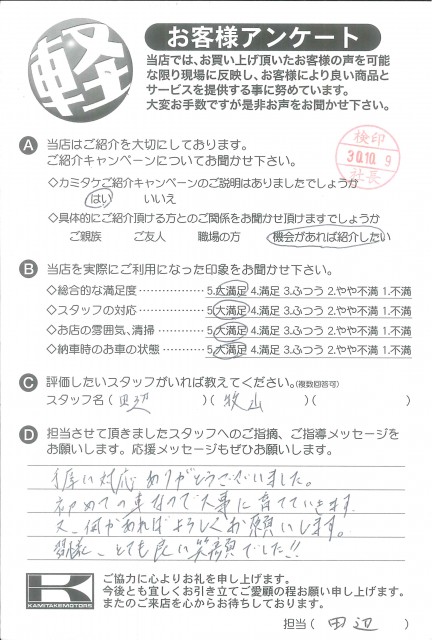 軽
お客様アンケート
当店では、お買い上げ頂いたお客様の声を可能
な限り現場に反映し、お客様により良い商品と
サービスを提供する事に努めています。
大変お手数ですが是非お声をお聞かせ下さい。
検印
30.10.9
社長
A 当店はご紹介を大切にしております。
ご紹介キャンペーンについてお聞かせ下さい。
◇カミタケご紹介キャンペーンのご説明はありましたでしょうか
はい いいえ
◇具体的にご紹介頂ける方とのご関係をお聞かせ頂けますでしょうか
ご親族 ご友人 職場の方 機会があれば紹介したい
B 当店を実際にご利用になった印象をお聞かせ下さい。
◇総合的な満足度 5.大満足 4.満足 3.ふつう 2.やや不満 1.不満
◇スタッフの対応 5.大満足 4.満足 3.ふつう 2.やや不満 1.不満
◇お店の雰囲気、清掃 5.大満足 4.満足 3.ふつう 2.やや不満 1.不満
◇納車時のお車の状態 5.大満足 4.満足 3.ふつう 2.やや不満 1.不満
C 評価したいスタッフがいれば教えてください。(複数回答可)
スタッフ名(田辺)(牧山)( )
D 担当させて頂きましたスタッフへのご指摘、ご指導メッセージを
お願いします。応援メッセージもぜひお願いします。
対応ありがとうございました。
初めての車なので大事に育てていきます
又、何かあればよろしくお願いします。
皆様、とても良い笑顔でした!!
K
KAMITAKEMOTORS
ご協力に心よりお礼を申し上げます。
今後とも宜しくお引き立てご愛顧の程お願い申し上げます。
またのご来店を心からお待ちしております。
担当(田辺)